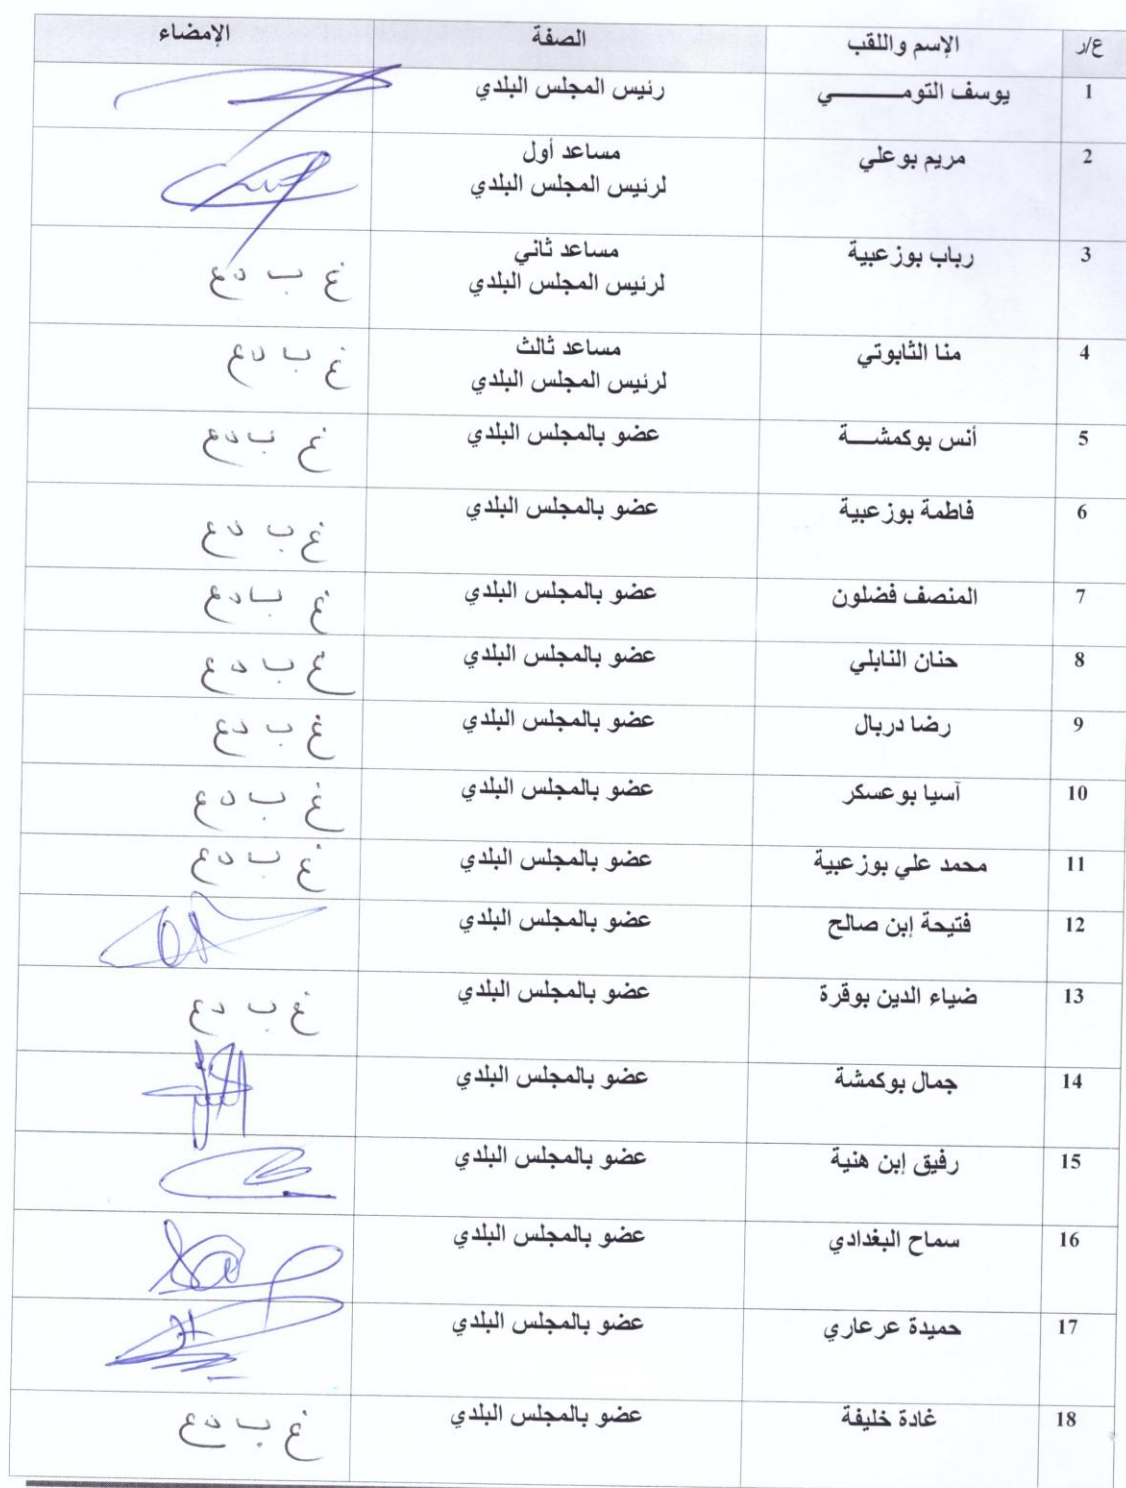 ع/ر الإسم واللقب الصفة الإمضاء
1 يوسف التومـــــــي رئيس المجلس البلدي
2 مريم بوعلي مساعد أول
لرئيس المجلس البلدي
3 رباب بوزعبية مساعد ثاني
لرئيس المجلس البلدي غ ب دع
4 منا الثابوتي مساعد ثالث
لرئيس المجلس البلدي غ ب دع
5 أنس بوكمشـــة عضو بالمجلس البلدي غ ب دع
6 فاطمة بوزعبية عضو بالمجلس البلدي غ ب دع
7 المنصف فضلون عضو بالمجلس البلدي غ ب دع
8 حنان النابلي عضو بالمجلس البلدي غ ب دع
9 رضا دربال عضو بالمجلس البلدي غ ب دع
10 آسيا بوعسكر عضو بالمجلس البلدي غ ب دع
11 محمد علي بوزعبية عضو بالمجلس البلدي غ ب دع
12 فتيحة إبن صالح عضو بالمجلس البلدي
13 ضياء الدين بوقرة عضو بالمجلس البلدي غ ب دع
14 جمال بوكمشة عضو بالمجلس البلدي
15 رفيق إبن هنية عضو بالمجلس البلدي
16 سماح البغدادي عضو بالمجلس البلدي
17 حميدة عرعاري عضو بالمجلس البلدي
18 غادة خليفة عضو بالمجلس البلدي غ ب دع